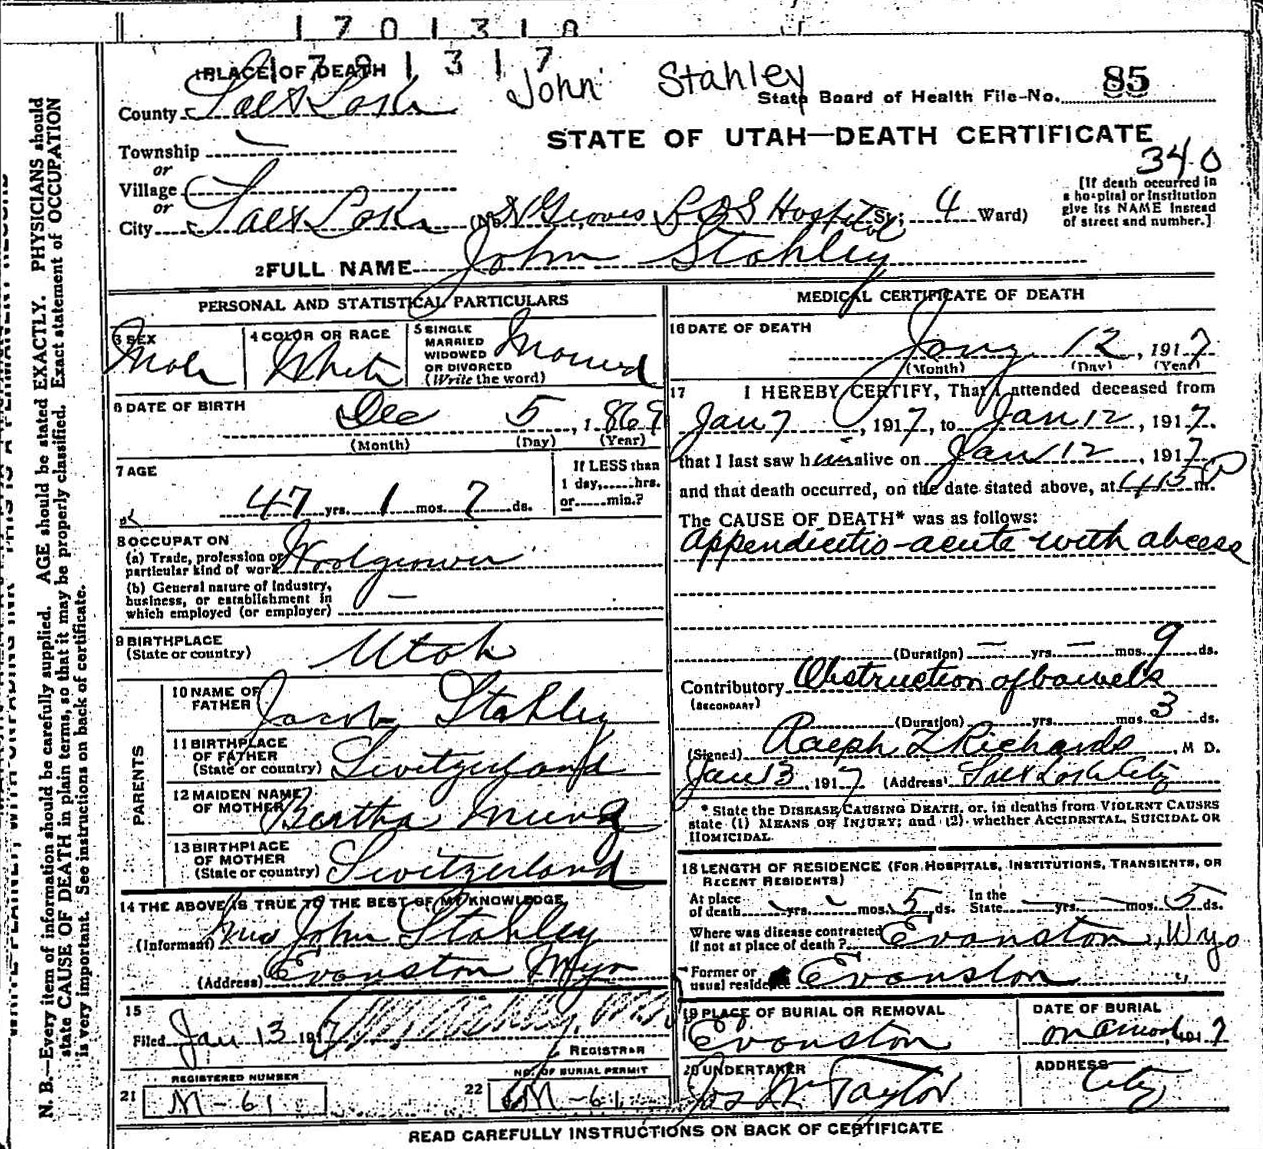 1701318
1701317
John Stahley
State Board of Health File No. 85
1 PLACE OF DEATH
County Salt Lake
STATE OF UTAH—DEATH CERTIFICATE
340
Township
or
Village
or
City Salt Lake (No. Groves L D S Hospital St; 4 Ward)
[If death occurred in
a hospital or institution
give its NAME instead
of street and number.]
2 FULL NAME John Stahley
PERSONAL AND STATISTICAL PARTICULARS
3 SEX
Male
4 COLOR OR RACE
White
5 SINGLE
MARRIED
WIDOWED
OR DIVORCED
(Write the word)
Married
6 DATE OF BIRTH
Dec 5, 1869
(Month) (Day) (Year)
7 AGE
47 yrs. 1 mos. 7 ds.
If LESS than
1 day,......hrs.
or......min.?
8 OCCUPATION
(a) Trade, profession or
particular kind of work Woolgrower
(b) General nature of industry,
business, or establishment in
which employed (or employer) —
9 BIRTHPLACE
(State or country) Utah
PARENTS
10 NAME OF
FATHER Jacob Stahley
11 BIRTHPLACE
OF FATHER
(State or country) Switzerland
12 MAIDEN NAME
OF MOTHER Bertha
13 BIRTHPLACE
OF MOTHER
(State or country) Switzerland
14 THE ABOVE IS TRUE TO THE BEST OF MY KNOWLEDGE
(Informant) Mrs John Stahley
(Address) Evanston Wyo
15
Filed Jan 13 1917
REGISTRAR
REGISTERED NUMBER
21 M-61
NO. OF BURIAL PERMIT
22 M-61
MEDICAL CERTIFICATE OF DEATH
16 DATE OF DEATH
Jany 12, 1917
(Month) (Day) (Year)
17 I HEREBY CERTIFY, That I attended deceased from
Jan 7, 1917, to Jan 12, 1917.
that I last saw him alive on Jan 12, 1917
and that death occurred, on the date stated above, at 4:15 P m.
The CAUSE OF DEATH* was as follows:
Appendicitis-acute with abcess
(Duration) — yrs. — mos. 9 ds.
Contributory Obstruction of bowels
(SECONDARY)
(Duration) yrs. mos. 3 ds.
(Signed) Ralph T Richards, M D.
Jan 13 1917 (Address) Salt Lake City
* State the DISEASE CAUSING DEATH, or, in deaths from VIOLENT CAUSES
state (1) MEANS OF INJURY; and (2) whether ACCIDENTAL, SUICIDAL OR
HOMICIDAL.
18 LENGTH OF RESIDENCE (FOR HOSPITALS, INSTITUTIONS, TRANSIENTS, OR
RECENT RESIDENTS)
At place
of death - yrs. - mos. 5 ds.
In the
State - yrs. - mos. 5 ds.
Where was disease contracted
if not at place of death? Evanston, Wyo
Former or
usual residence Evanston
19 PLACE OF BURIAL OR REMOVAL
Evanston
DATE OF BURIAL
20 UNDERTAKER
Jos Wm Taylor
ADDRESS
City
READ CAREFULLY INSTRUCTIONS ON BACK OF CERTIFICATE
N. B.—Every item of information should be carefully supplied. AGE should be stated EXACTLY. PHYSICIANS should
state CAUSE OF DEATH in plain terms, so that it may be properly classified. Exact statement of OCCUPATION
is very important. See instructions on back of certificate.